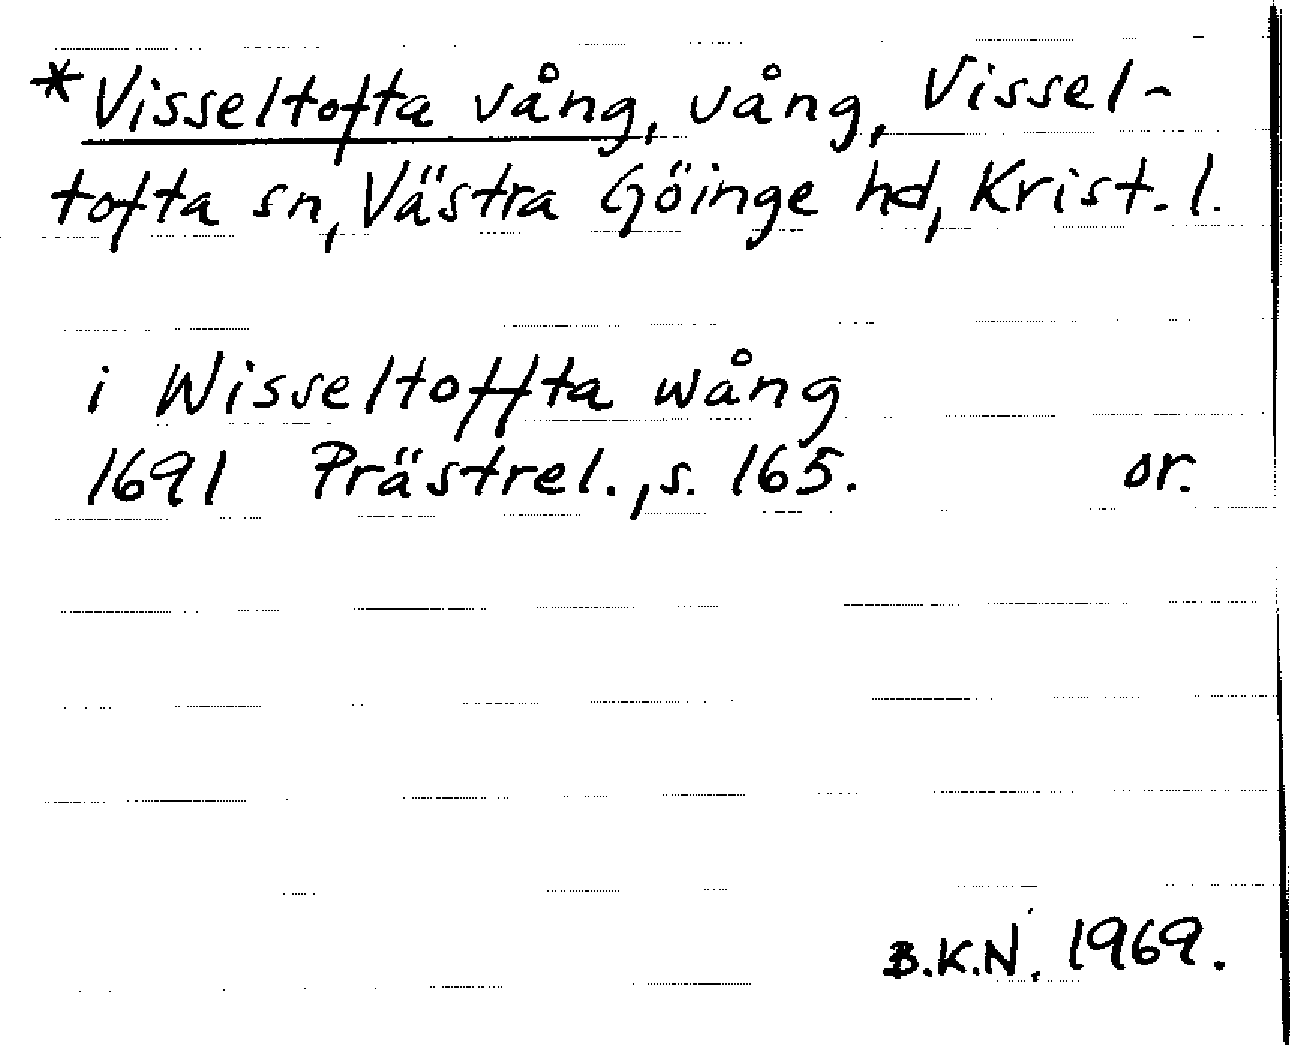 *Visseltofta vång, vång, Vissel-
tofta sn, Västra Göinge hd, Krist. l.
i Wisseltoffta wång
1691 Prästrel., s. 165. or.
B.K.N. 1969.